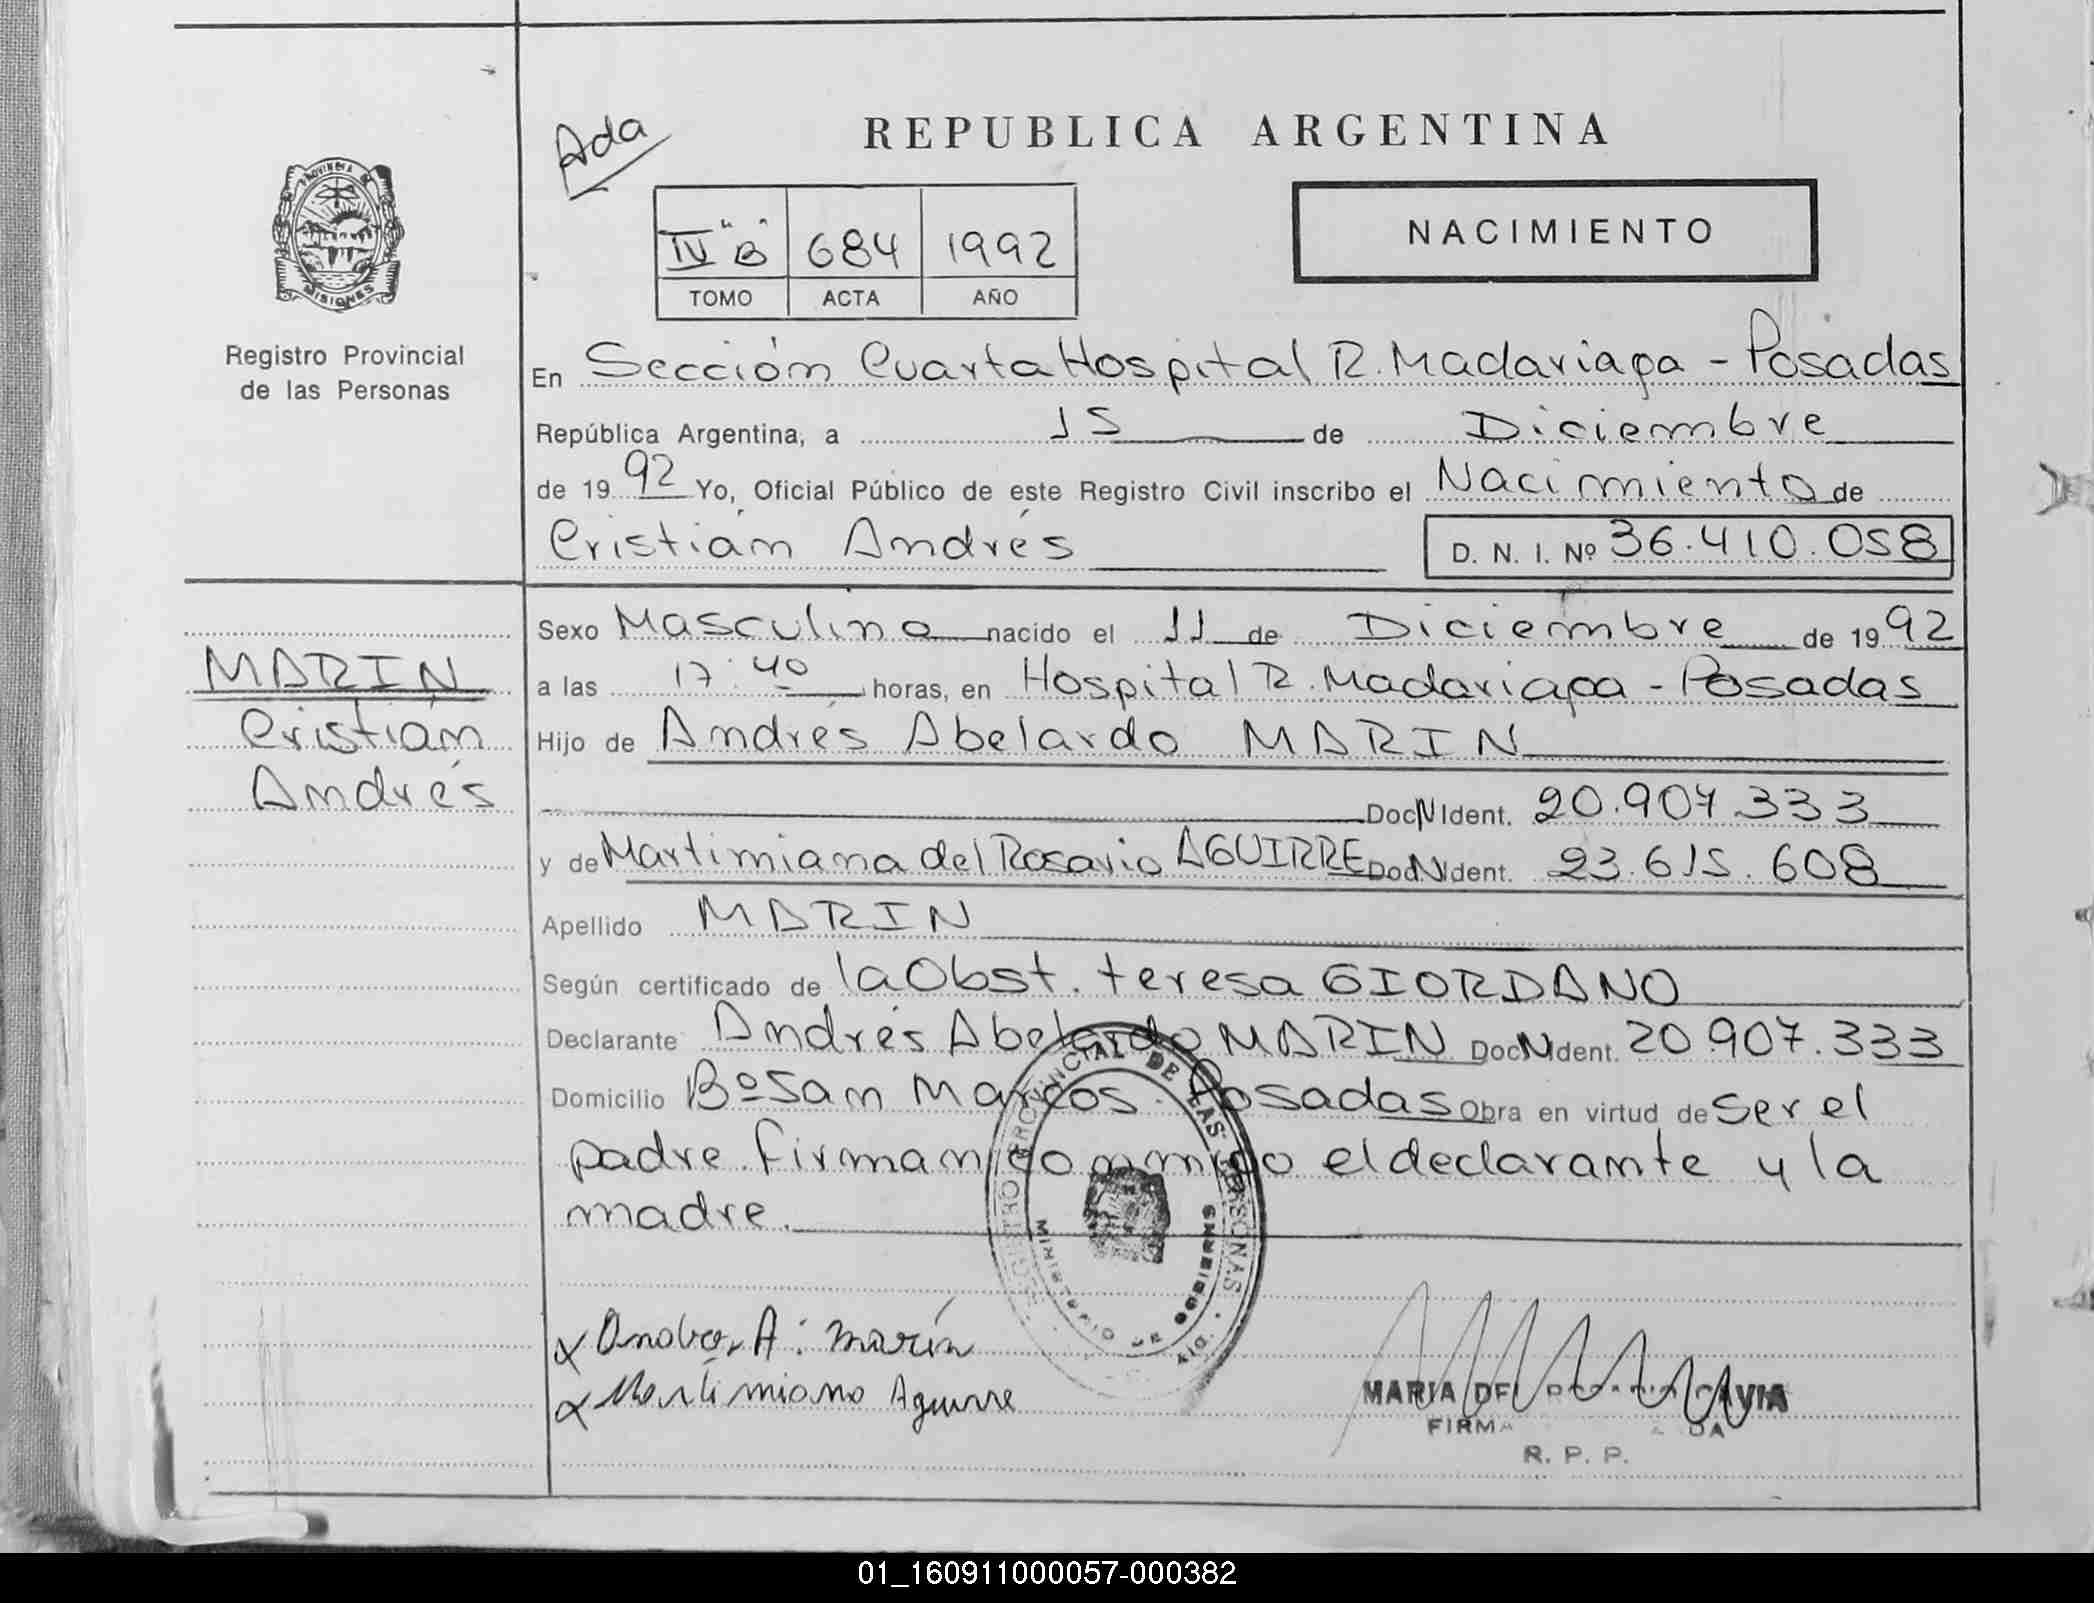 REPUBLICA ARGENTINA
Ada
PROVINCIA DE
MISIONES
Registro Provincial
de las Personas
IV "B" 684 1992
TOMO ACTA AÑO
NACIMIENTO
En Sección Cuarta Hospital R. Madariaga - Posadas
República Argentina, a 15 de Diciembre
de 1992 Yo, Oficial Público de este Registro Civil inscribo el Nacimiento de
Cristián Andrés D. N. I. Nº 36.410.058
Sexo Masculino nacido el 11 de Diciembre de 1992
MARIN
Cristián
Andrés
a las 17:40 horas, en Hospital R. Madariaga - Posadas
Hijo de Andrés Abelardo MARIN
Doc N Ident. 20.907.333
y de Martimiana del Rosario AGUIRRE Doc N Ident. 23.615.608
Apellido MARIN
Según certificado de la Obst. teresa GIORDANO
Declarante Andrés Abelardo MARIN Doc N Ident. 20.907.333
Domicilio Bº San Marcos. Posadas Obra en virtud de Ser el
padre. firmando conmigo el declarante y la
madre.
REGISTRO PROVINCIAL DE LAS PERSONAS
MINISTERIO DE GOBIERNO
x Andres A. Marín
x Martimiana Aguirre
MARIA DEL CAVIA
FIRMA
R. P. P.
01_160911000057-000382